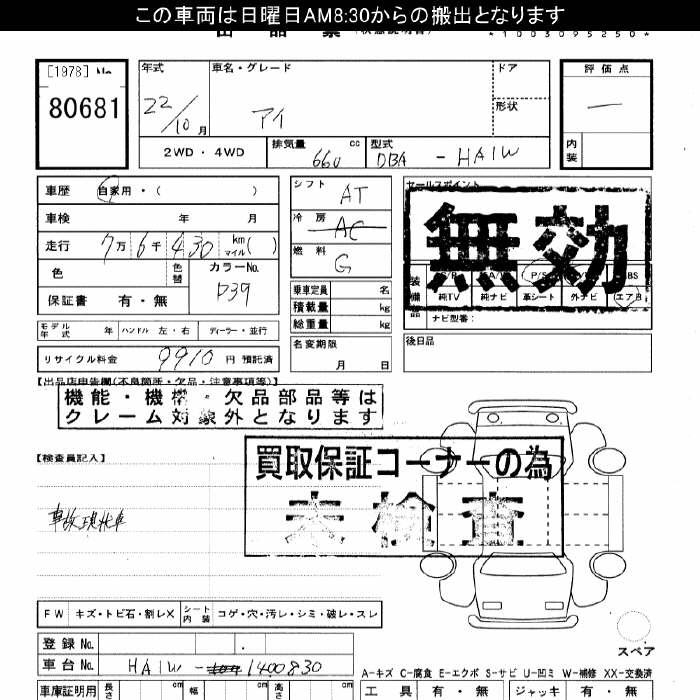 この車両は日曜日AM8:30からの搬出となります
*1003095250*
[1978] No
80681
年式 車名・グレード ドア 評価点
22/10 月 アイ 形状 —
2WD・4WD 排気量 660 cc 型式 DBA - HA1W 内装
車歴 自家用・( )
車検 年 月
走行 7万 6千 430 km マイル ( )
色 色替 カラーNo. D39
保証書 有・無
モデル年式 年 ハンドル 左・右 ディーラー・並行
リサイクル料金 9910 円 預託済
シフト AT
冷房 AC
燃料 G
乗車定員 名
積載量 kg
総重量 kg
名変期限 月 日
セールスポイント
無効
装備品 P/S ABS
純TV 純ナビ 革シート 外ナビ エアB
ナビ型番:
後日品
【出品店申告欄(不良箇所・欠品・注意事項等)】
機能・機構・欠品部品等は
クレーム対象外となります
【検査員記入】
買取保証コーナーの為
未検査
事故現状車
FW キズ・トビ石・割レX シート内装 コゲ・穴・汚レ・シミ・破レ・スレ
スペア
登録No.
車台No. HA1W-1400830
A-キズ C-腐食 E-エクボ S-サビ U-凹ミ W-補修 XX-交換済
車庫証明用 長さ cm 幅 cm 高さ cm 工具 有・無 ジャッキ 有・無